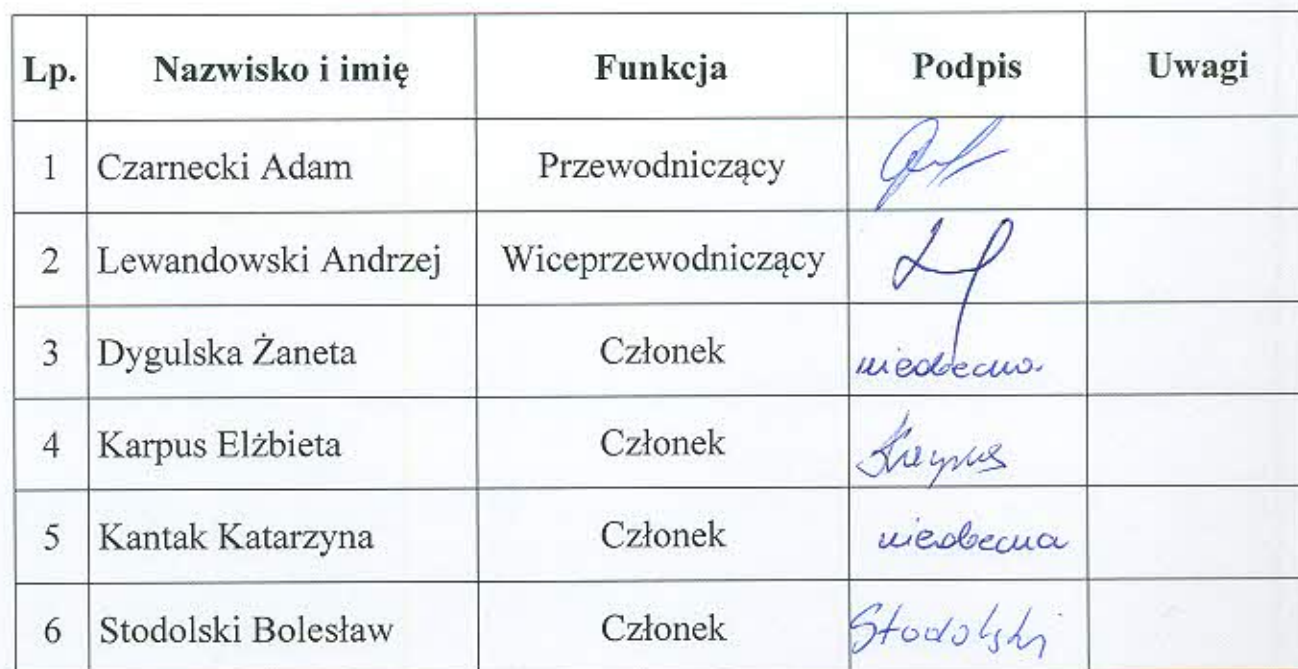 Lp. Nazwisko i imię Funkcja Podpis Uwagi
1 Czarnecki Adam Przewodniczący
2 Lewandowski Andrzej Wiceprzewodniczący
3 Dygulska Żaneta Członek nieobecna
4 Karpus Elżbieta Członek Karpus
5 Kantak Katarzyna Członek nieobecna
6 Stodolski Bolesław Członek Stodolski